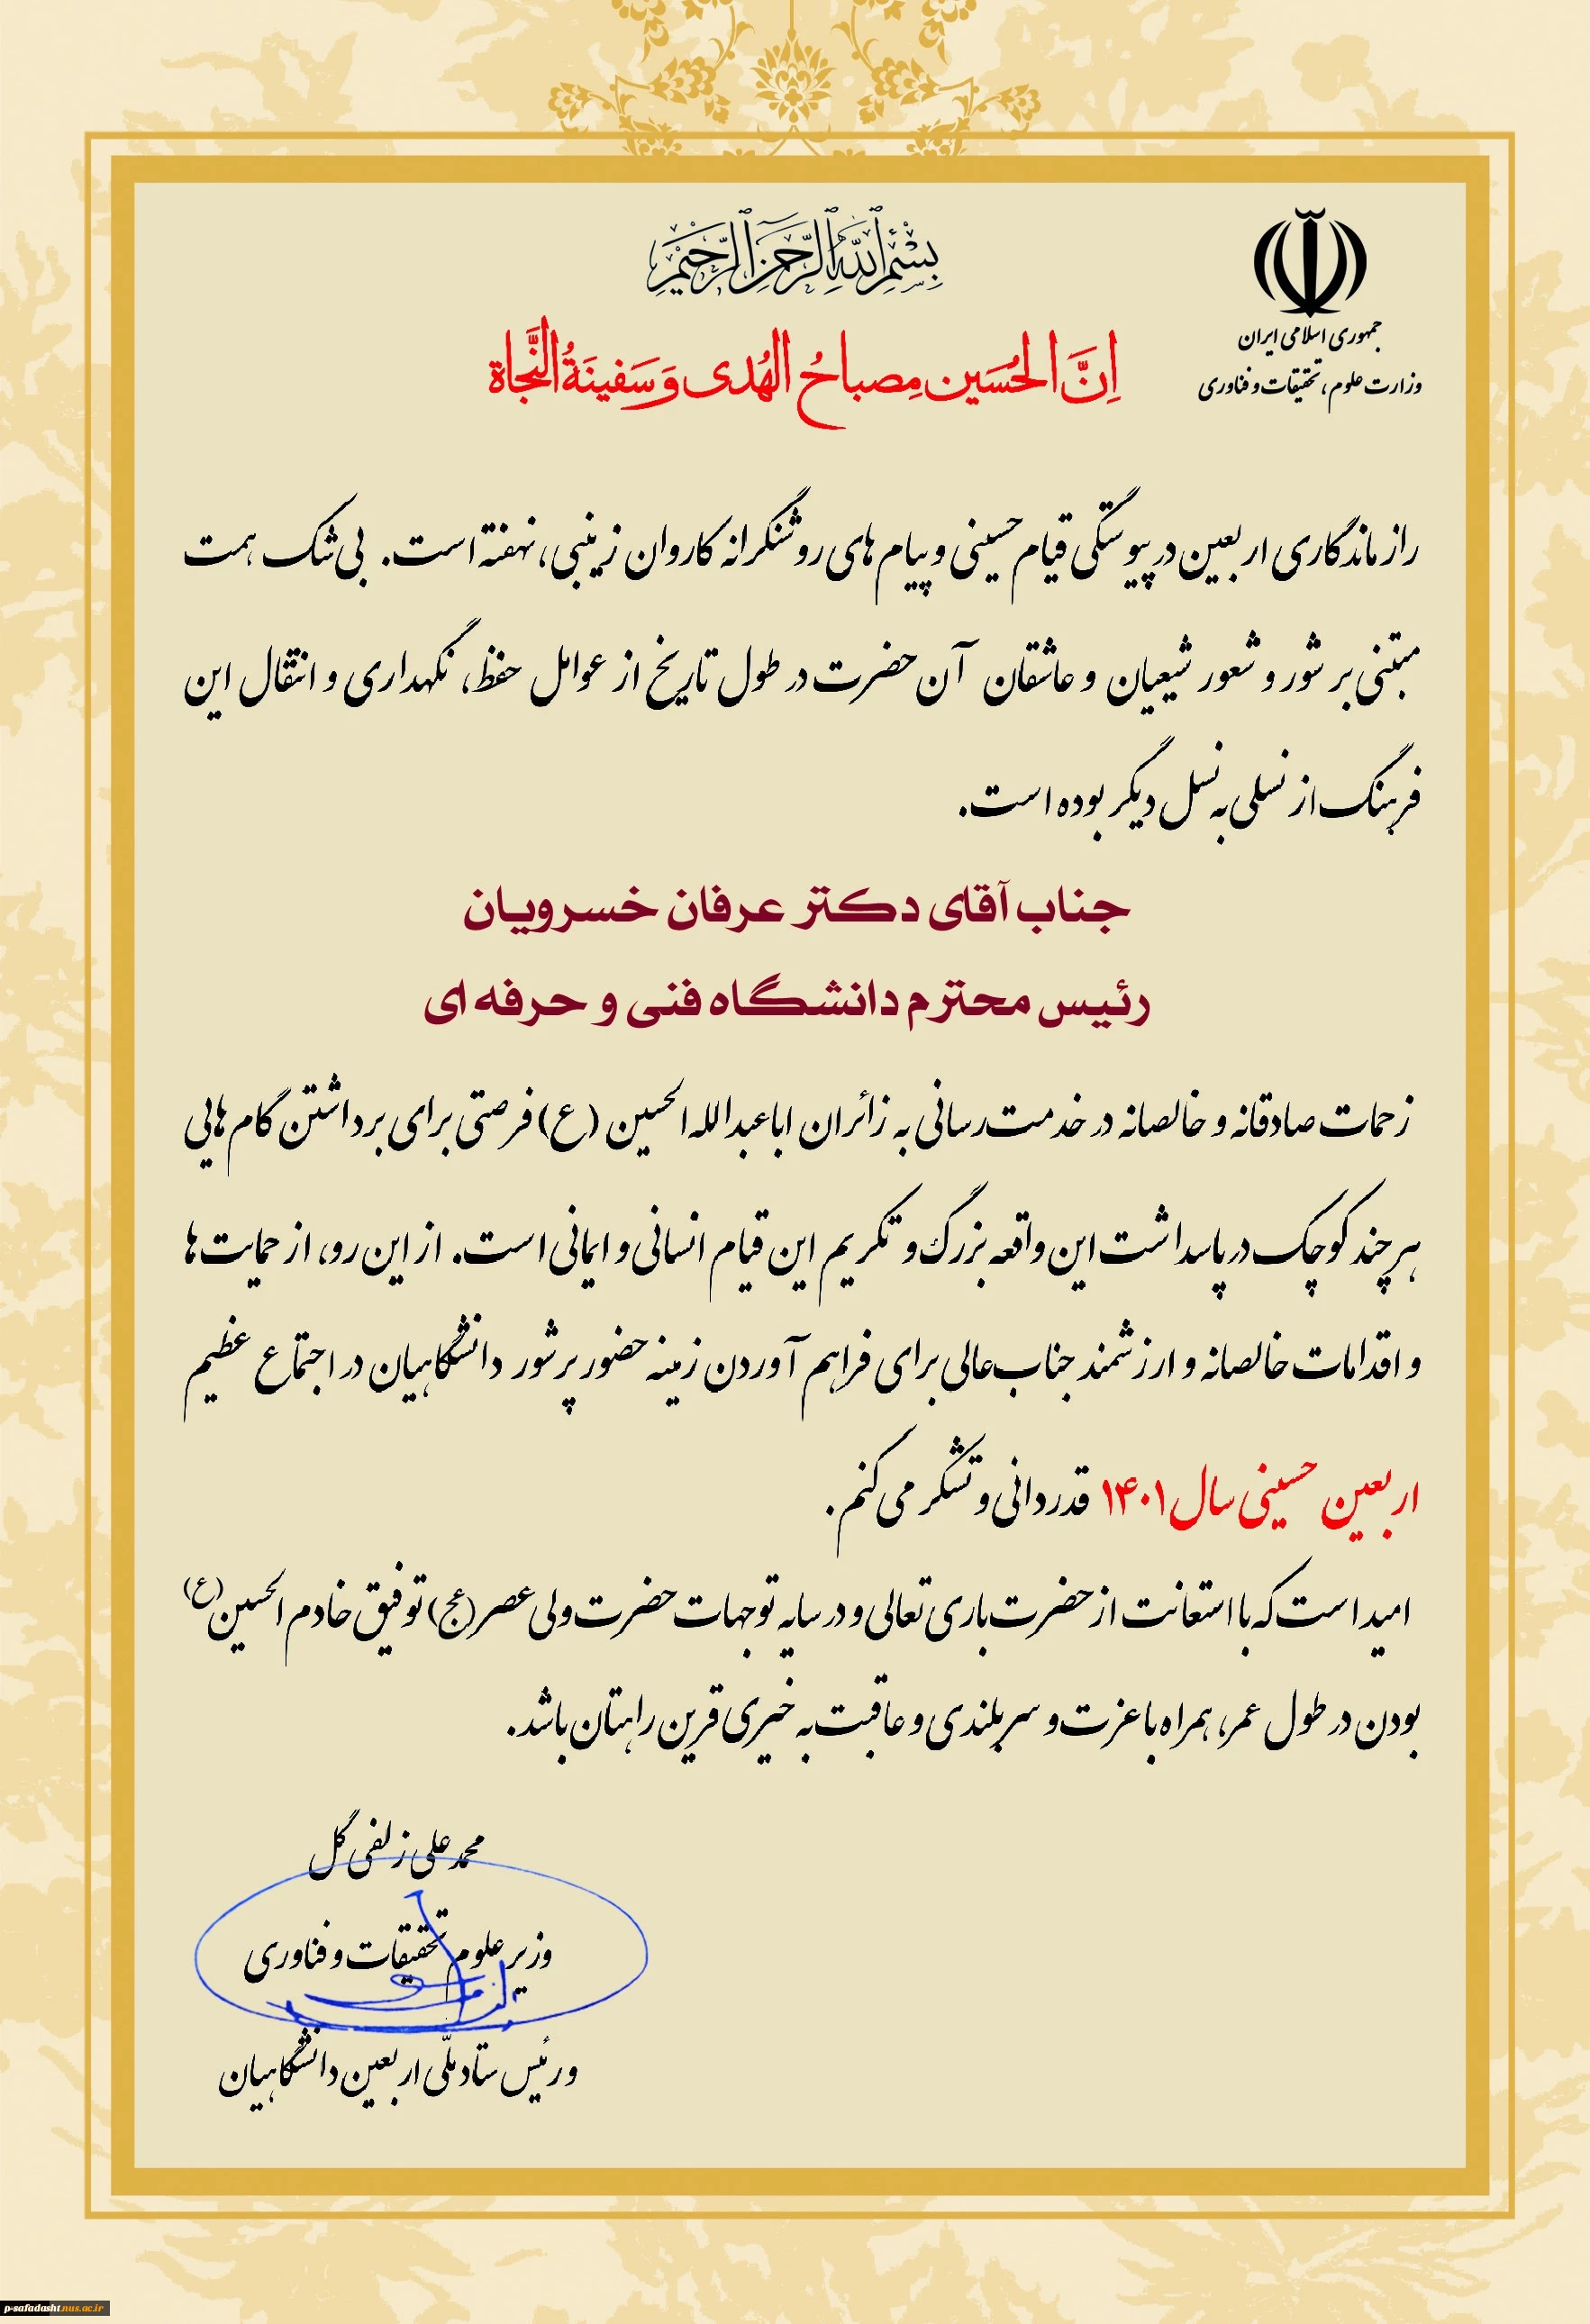 بِسْمِ اللَّهِ الرَّحْمَٰنِ الرَّحِيمِ
جمهوری اسلامی ایران
وزارت علوم، تحقیقات و فناوری
اِنَّ الحُسَین مِصباحُ الهُدی وَ سَفینَةُ النَّجاة
راز ماندگاری اربعین در پیوستگی قیام حسینی و پیام های روشنگرانه کاروان زینبی، نهفته است. بی شک همت
مبتنی بر شور و شعور شیعیان و عاشقان آن حضرت در طول تاریخ از عوامل حفظ، نگهداری و انتقال این
فرهنگ از نسلی به نسل دیگر بوده است.
جناب آقای دکتر عرفان خسرویان
رئیس محترم دانشگاه فنی و حرفه ای
زحمات صادقانه و خالصانه در خدمت رسانی به زائران اباعبدالله الحسین (ع) فرصتی برای برداشتن گام هایی
هر چند کوچک در پاسداشت این واقعه بزرگ و تکریم این قیام انسانی و ایمانی است. از این رو، از حمایت ها
و اقدامات خالصانه و ارزشمند جناب عالی برای فراهم آوردن زمینه حضور پر شور دانشگاهیان در اجتماع عظیم
اربعین حسینی سال ۱۴۰۱ قدردانی و تشکر می کنم.
امید است که با استعانت از حضرت باری تعالی و در سایه توجهات حضرت ولی عصر (عج) توفیق خادم الحسین (ع)
بودن در طول عمر، همراه با عزت و سربلندی و عاقبت به خیری قرین راهتان باشد.
محمد علی زلفی گل
وزیر علوم تحقیقات و فناوری
و رئیس ستاد ملّی اربعین دانشگاهیان
p-safadasht.nus.ac.ir